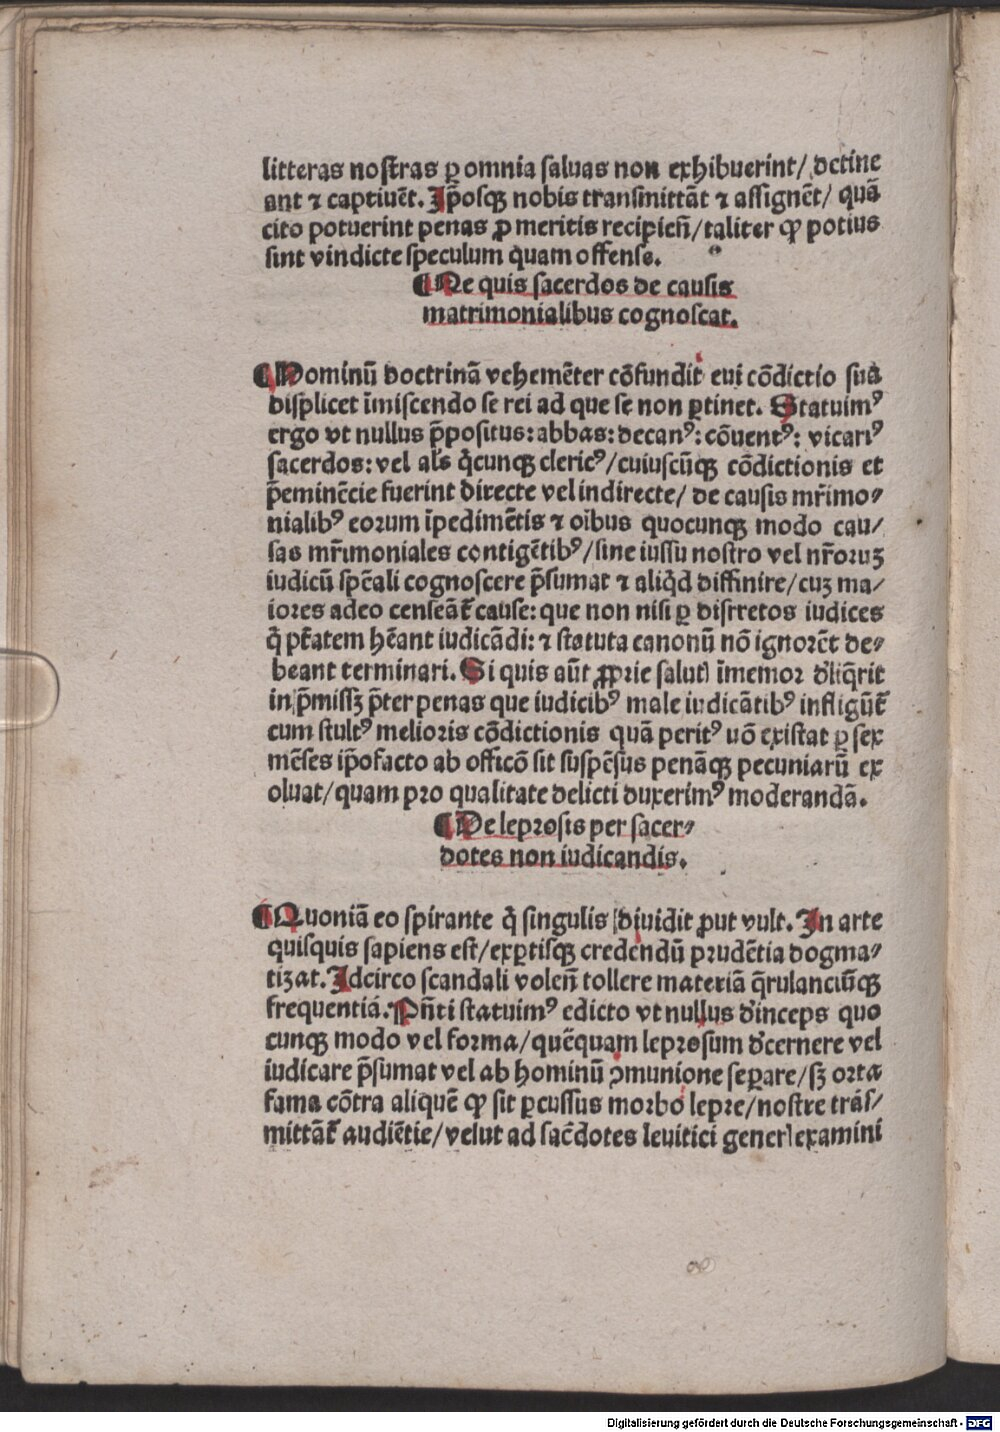 litteras nostras ꝑ omnia saluas non exhibuerint/ detine
ant ⁊ captiuēt. Ip̄osqꝫ nobis transmittāt ⁊ assignēt/ quā
cito potuerint penas ꝓ meritis recipień/taliter ꝙ potius
sint vindicte speculum quam offense.
¶ Ne quis sacerdos de causis
matrimonialibus cognoscat.
¶ Dominū doctrinā vehemēter cōfundit cui cōdictio sua
displicet īmiscendo se rei ad que se non ꝑtinet. Statuimꝰ
ergo vt nullus p̄positus: abbas: decanꝰ: cōuentꝰ: vicariꝰ
sacerdos: vel als q̄cunqꝫ clericꝰ/cuiuscūqꝫ cōdictionis et
p̄eminēcie fuerint directe vel indirecte/ de causis mr̄imo⸗
nialibꝰ eorum īpedimētis ⁊ oībus quocunqꝫ modo cau/
sas mr̄imoniales contigētibꝰ/sine iussu nostro vel nr̄oruꝫ
iudicū sp̄eali cognoscere p̄sumat ⁊ aliq̄d diffinire/cuꝫ ma/
iores adeo censeāt̄ cause: que non nisi ꝑ disrretos iudices
q̄ pt̄atem hēant iudicādi: ⁊ statuta canonū nō ignorēt de⸗
beant terminari. Si quis aūt ꝓprie salutꝭ īmemor d'liq̄rit
in p̄missꝫ p̄ter penas que iudicibꝰ male iudicātibꝰ infligūt̄
cum stultꝰ melioris cōdictionis quā peritꝰ uō existat ꝑ sex
mēses ip̄ofacto ab officō sit suspēsus penāqꝫ pecuniarū ex
oluat/quam pro qualitate delicti duxerimꝰ moderandā.
¶ De leprosis per sacer⸗
dotes non iudicandis.
¶ Quoniā eo spirante q̄ singulis diuidit ꝓut vult. In arte
quisquis sapiens est/exꝑtisqꝫ credendū prudētia dogma⸗
tizat. Idcirco scandali voleń tollere materiā q̄rulanciūqꝫ
frequentiā. Pn̄ti statuimꝰ edicto vt nullus d'inceps quo
cunqꝫ modo vel forma/quēquam leprosum d'cernere vel
iudicare p̄sumat vel ab hominū ↄmunione seꝑare/sꝫ orta
fama cōtra aliquē ꝙ sit ꝑcussus morbo lepre/nostre trās/
mittāt̄ audiētie/velut ad sac̄dotes leuitici generꝭ examini
Digitalisierung gefördert durch die Deutsche Forschungsgemeinschaft - DFG